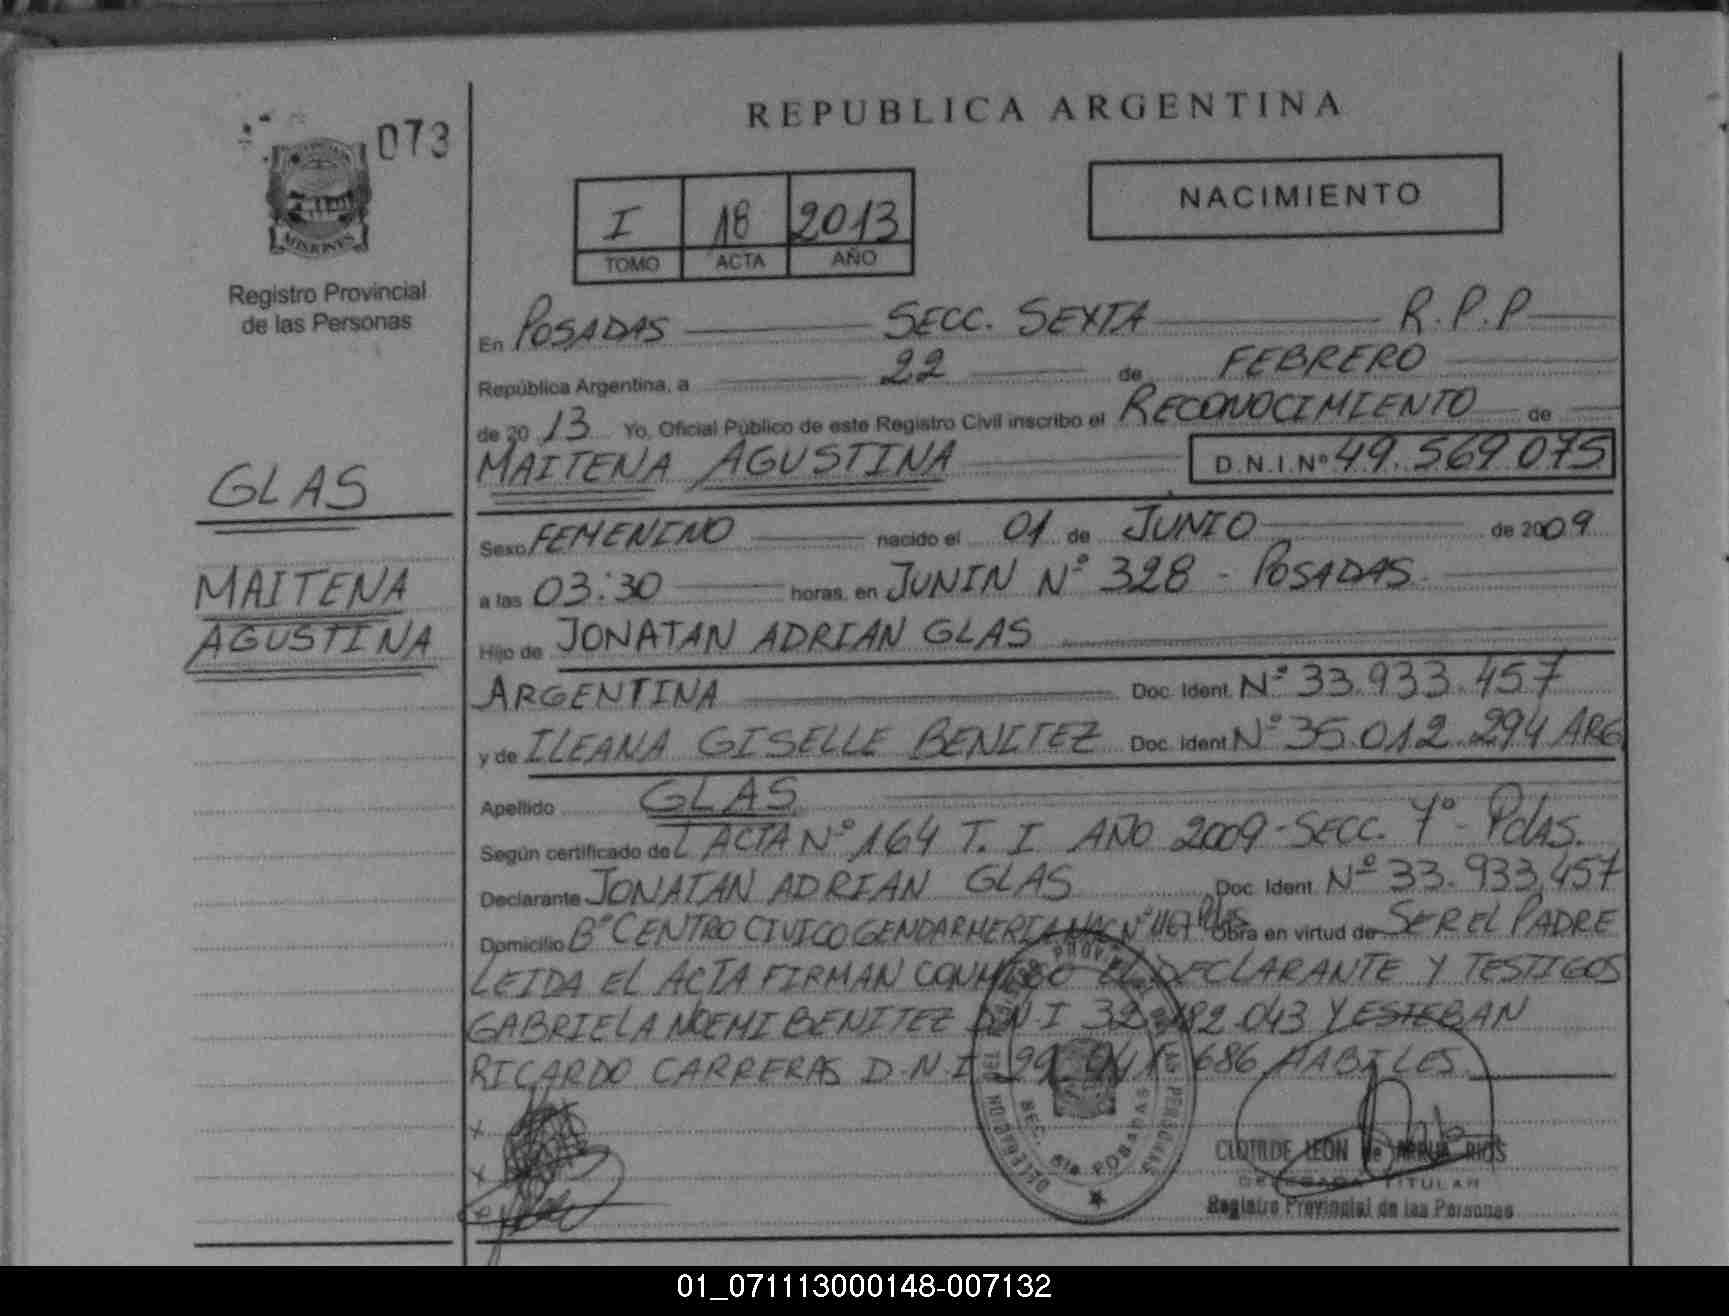 073
REPUBLICA ARGENTINA
NACIMIENTO
I 18 2013
TOMO ACTA AÑO
MISIONES
Registro Provincial
de las Personas
En POSADAS SECC. SEXTA R.P.P
República Argentina, a 22 de FEBRERO
de 2013 Yo, Oficial Público de este Registro Civil inscribo el RECONOCIMIENTO de
MAITENA AGUSTINA D.N.I.Nº 49.569.075
GLAS
MAITENA
AGUSTINA
Sexo FEMENINO nacido el 01 de JUNIO de 2009
a las 03:30 horas, en JUNIN Nº 328 - POSADAS.
Hijo de JONATAN ADRIAN GLAS
ARGENTINA Doc. Ident. Nº 33.933.457
y de ILEANA GISELLE BENITEZ Doc. Ident Nº 35.012.294 ARG
Apellido GLAS
Según certificado del ACTA Nº 164 T. I AÑO 2009 - SECC. 7º - Pdas.
Declarante JONATAN ADRIAN GLAS Doc. Ident. Nº 33.933.457
Domicilio Bº CENTRO CIVICO GENDARMERIA NAC Nº 1167 Pdas Obra en virtud de SER EL PADRE
LEIDA EL ACTA FIRMAN CONMIGO EL DECLARANTE Y TESTIGOS
GABRIELA NOEMI BENITEZ D.N.I Y ESTEBAN
RICARDO CARRERAS D.N.I 686 HABILES
SEC. 6ta. POSADAS
CLOTILDE LEON de RIOS
DELEGADA TITULAR
Registro Provincial de las Personas
01_071113000148-007132